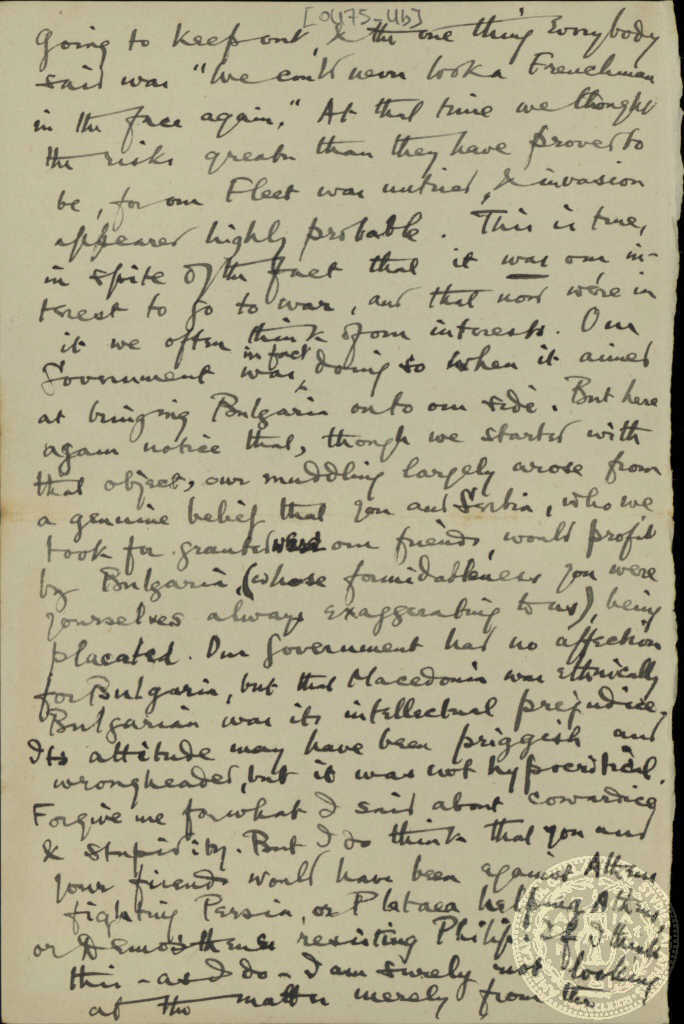 [0475-Ub]
going to keep out, & the one thing everybody
said was "We could never look a Frenchman
in the face again." At that time we thought
the risks greater than they have proved to
be, for our Fleet was untried, & invasion
appeared highly probable. This is true,
in spite of the fact that it was our in-
terest to go to war, and that now we're in
it we often think of our interests. Our
Government was in fact doing so when it aimed
at bringing Bulgaria onto our side. But here
again notice that, though we started with
that object, our muddling largely arose from
a genuine belief that you and Serbia, who we
took for granted were our friends, would profit
by Bulgaria, (whose formidableness you were
yourselves always exaggerating to us), being
placated. Our Government had no affection
for Bulgaria, but that Macedonia was ethnically
Bulgarian was its intellectual prejudice.
Its attitude may have been priggish and
wrongheaded, but it was not hypocritical.
Forgive me for what I said about cowardice
& stupidity. But I do think that you and
your friends would have been against Athens
fighting Persia, or Plataea helping Athens,
or Demosthenes resisting Philip. If I think
this - as I do - I am surely not looking
at the matter merely from the